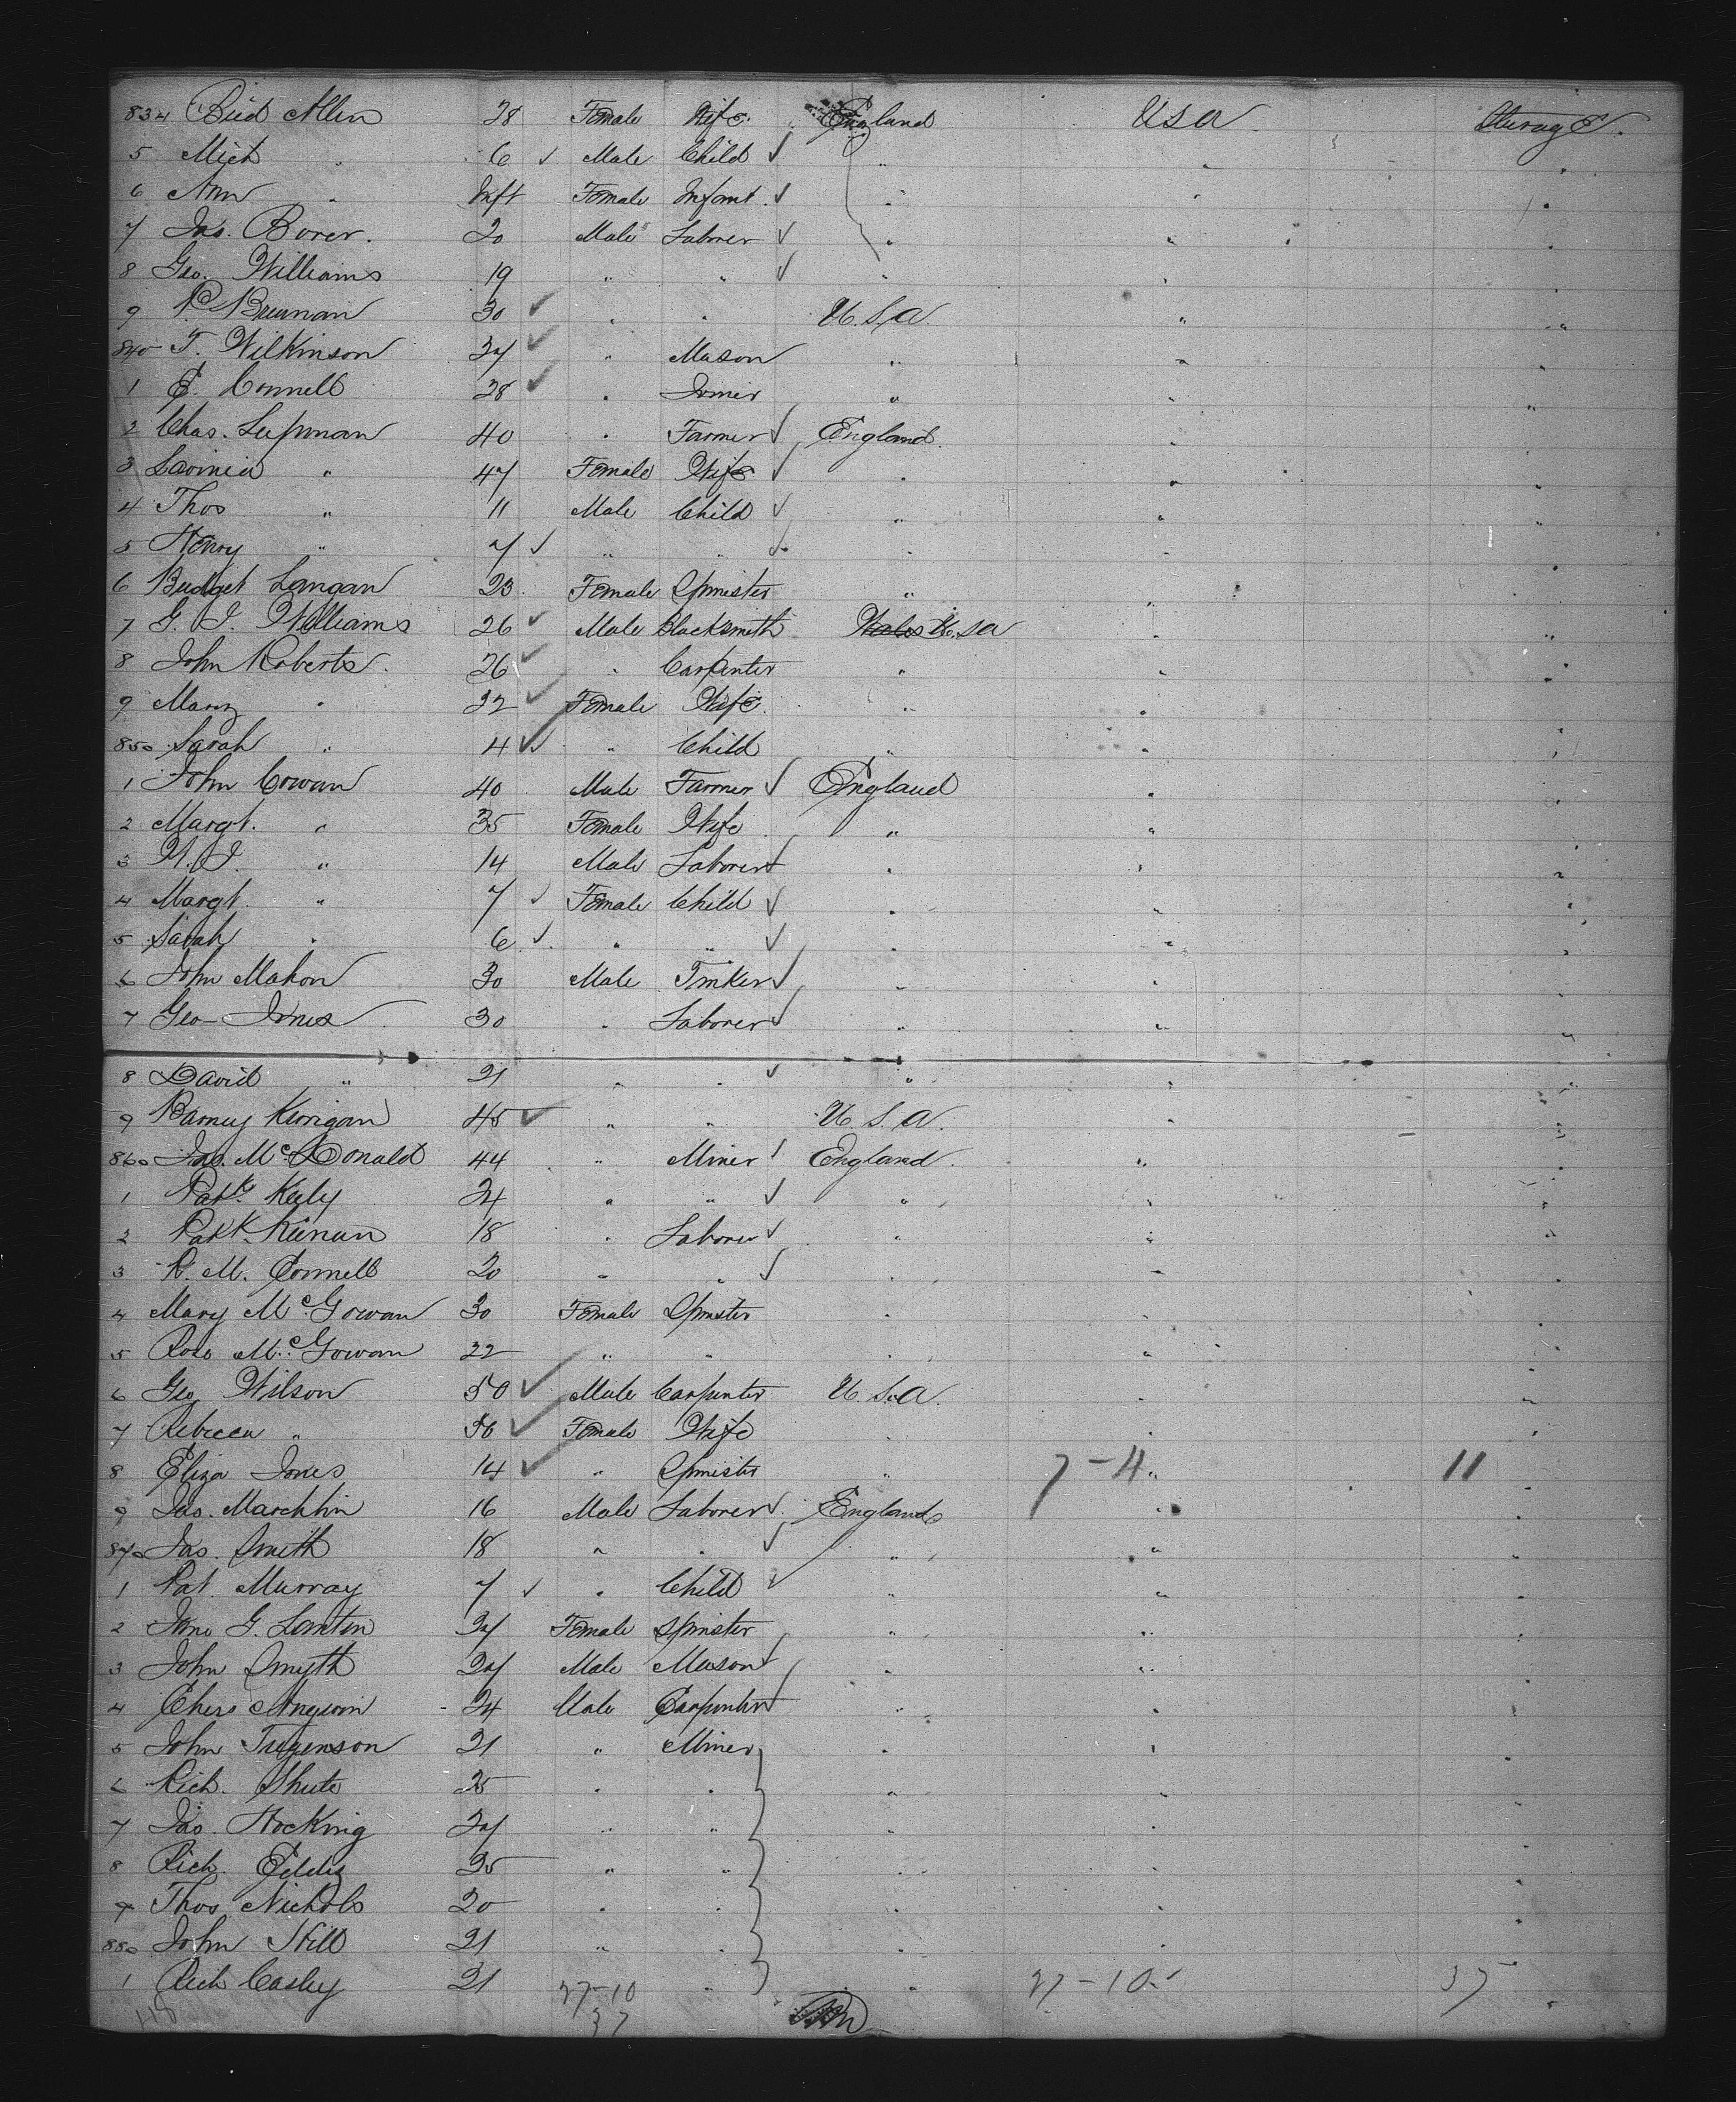 834 Bird Allen 28 Female Wife England USA Steerage
5 Mich " 6 ✓ Male Child ✓ " " "
6 Ann " Inft Female Infant ✓ " " "
7 Jas. Borer. 20 Male Laborer ✓ " " "
8 Geo. Williams 19 " " ✓ " " "
9 P. Brennan 30 ✓ " " U.S.A. " "
840 T. Wilkinson 37 ✓ " Mason " " "
1 E. Connell 28 ✓ " Joiner " " "
2 Chas. Lupman 40 " Farmer ✓ England " "
3 Lavinia " 47 Female Wife ✓ " " "
4 Thos " 11 Male Child ✓ " " "
5 Henry " 7 ✓ " " ✓ " " "
6 Bridget Langan 23 Female Spinster " " "
7 G. J. Williams 26 ✓ Male Blacksmith Wales U.S.A " "
8 John Roberts 26 ✓ " Carpenter " " "
9 Mary " 22 ✓ Female Wife " " "
850 Sarah " 4 ✓ " Child " " "
1 John Cowan 40 Male Farmer ✓ England " "
2 Margt. " 35 Female Wife " " "
3 W. J. " 14 Male Laborer ✓ " " "
4 Margt. " 7 ✓ Female Child ✓ " " "
5 Sarah " 6 ✓ " " ✓ " " "
6 John Mahon 30 Male Tinker ✓ " " "
7 Geo Jones 30 " Laborer ✓ " " "
8 David " 21 " " ✓ " " "
9 Barney Kerrigan 45 ✓ " " U.S.A. " "
860 Jas. McDonald 44 " Miner England " "
1 Patk. Kealy 24 " " ✓ " " "
2 Patk. Keenan 18 " Laborer ✓ " " "
3 P. M. Connell 20 " " ✓ " " "
4 Mary McGowan 30 Female Spinster " " "
5 Rose McGowan 22 " " " " "
6 Geo Wilson 50 ✓ Male Carpenter U.S.A. " "
7 Rebecca " 50 ✓ Female Wife " " "
8 Eliza Jones 14 ✓ " Spinster " 7-4 " 11 "
9 Jas. Marchlin 16 Male Laborer ✓ England " "
870 Jas. Smith 18 " " ✓ " " "
1 Pat. Murray 7 ✓ " Child ✓ " " "
2 Jane G. Lawton 27 Female Spinster " " "
3 John Smyth 27 Male Mason ✓ " " "
4 24 Male Carpenter ✓ " " "
5 John 21 " Miner " " "
6 Rich. Shute 25 " " " " "
7 Jas. Hocking 27 " " " " "
8 Rich. Eddy 25 " " " " "
9 Thos Nichols 20 " " " " "
880 John Hill 21 " " " " "
1 Rich Casley 21 " " 27-10 37 "
118 27-10
37